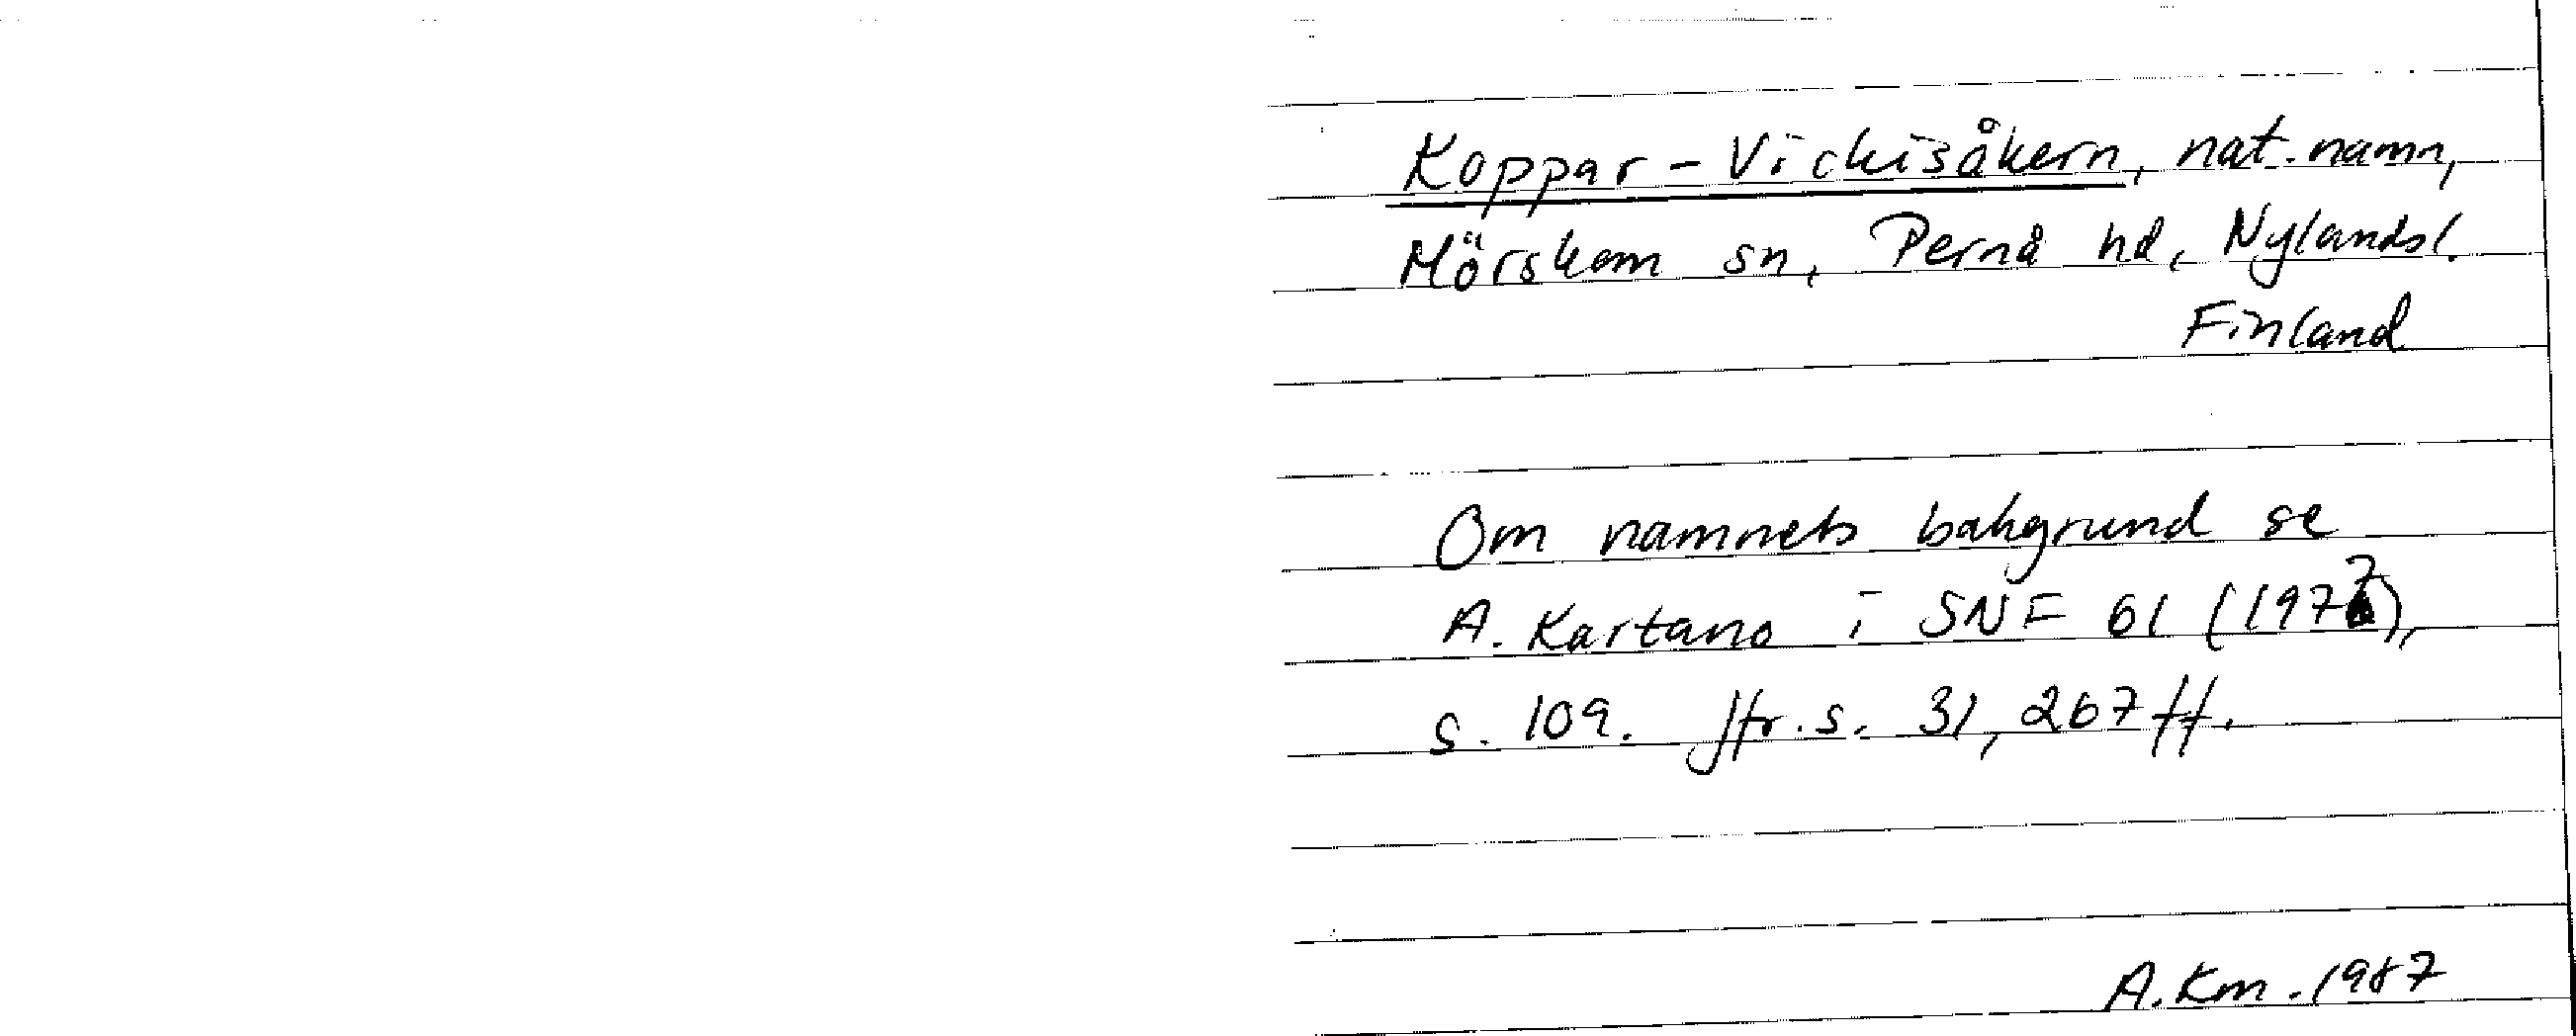 Koppar-Vickisåkern, nat.namn,
Mörskom sn, Pernå hd, Nylandsl.
Finland
Om namnets bakgrund se
A. Kartano i SNF 61 (1977),
s. 109. Jfr.s. 31, 267 ff.
A.Km.1987